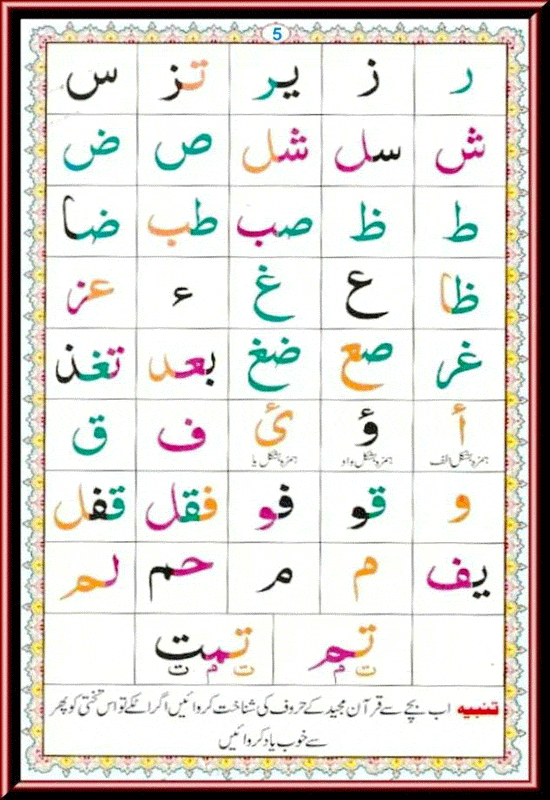 5
ر ز یر تز س
ش سل شل ص ض
ط ظ صب طب ضا
ظا ع غ ء عز
غر صع ضغ بعد تغذ
أ ؤ ئ ف ق
ہمزہ بشکل الف ہمزہ بشکل واو ہمزہ بشکل یا
و قو فو فقل قفل
یف م م حم لم
تم تمت
ت م ت م ت
تنبیہ اب بچے سے قرآن مجید کے حروف کی شناخت کروائیں اگر اٹکے تو اس تختی کو پھر
سے خوب یاد کروائیں